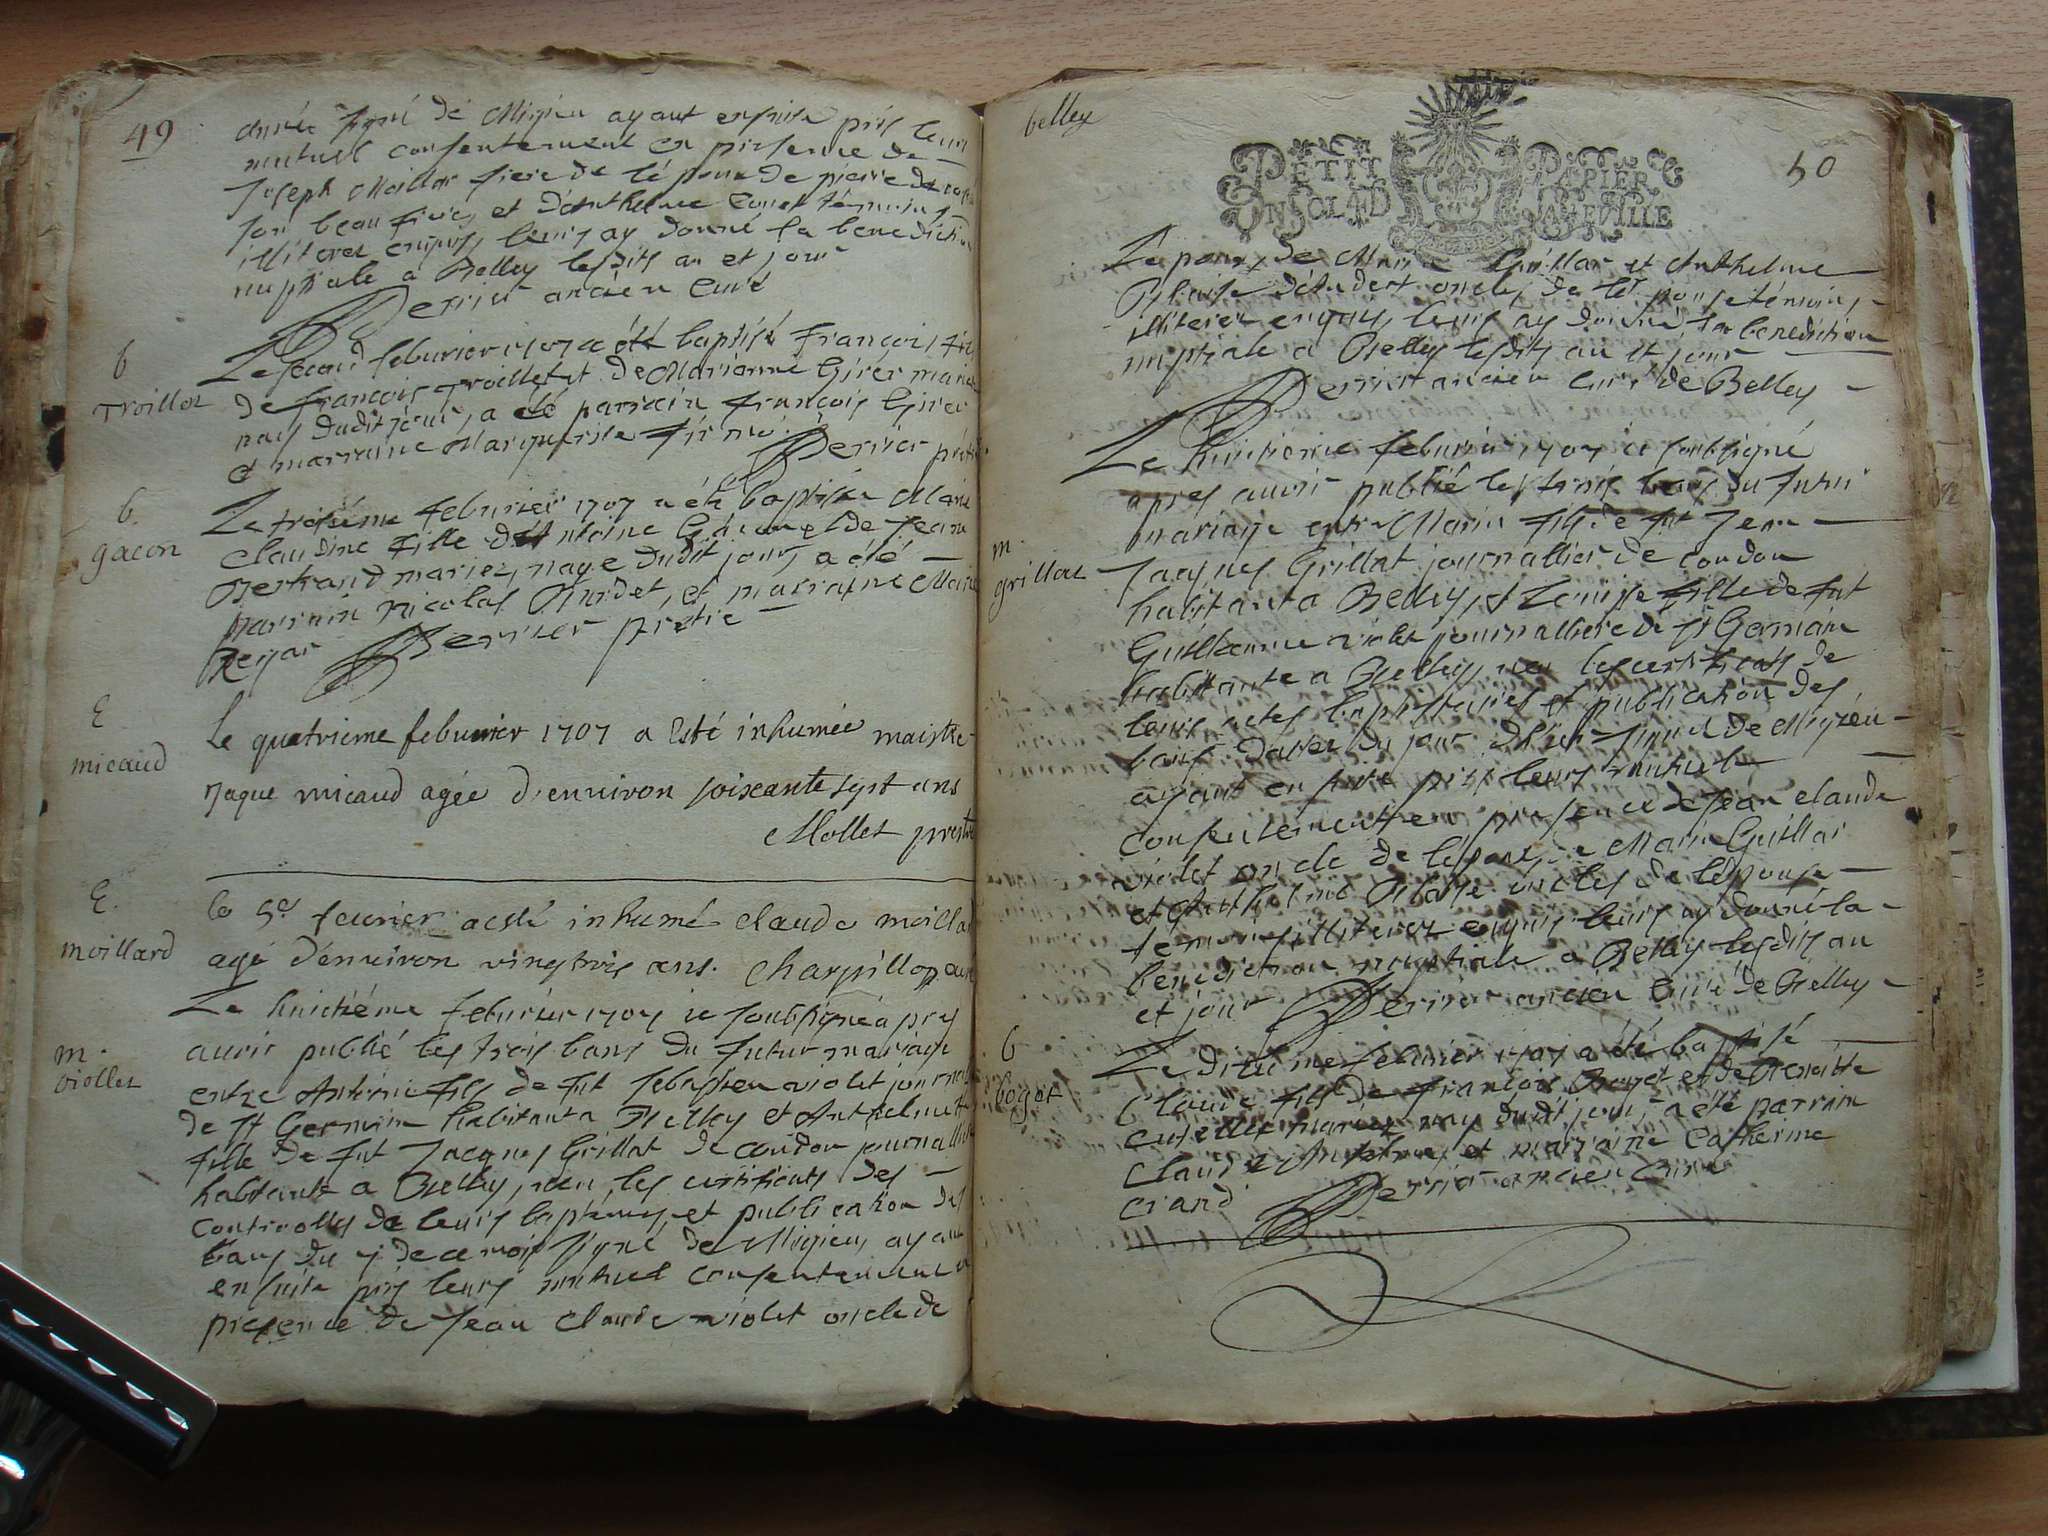 49
signé de Migieu ayant ensuite pris leurs
mutuel consentement en presence de
Joseph Moillar frere de lépoux de pierre
son beau frere, et d'Anthelme témoins
illiterez enquis, leurs ay donné la benediction
nuptiale a Belley lesdits an et jour
Perrier ancien Curé
b
Troillet
Le second feburier 1707 a été baptisé François fils
de françois Troillet et de Marianne Girer mariez
nay dudit jour, a été parrain françois Girer
et marraine Marguerite
Perrier prêtre
b.
gacon
Le troisiéme feburier 1707 a été baptisée Marie
Claudine fille d'Antoine Gacon et de Jeanne
Bertrand mariez, naye dudit jour, a été
parrain Nicolas Burdet, et marraine Marie
Reyar Perrier prêtre
E
micaud
Le quatrieme feburier 1707 a Esté inhumée maistre
Jaque micaud agée d'enuiron soixante sept ans
Mollet prestre
E.
moillard
le 5e feurier a esté inhumé claude moillar
agé d'énuiron vingt trois ans. Charpillon
m.
viollet
Le huictiéme feburier 1707 ie soubsigné apres
auoir publié les trois bans du futur mariage
entre Antoine fils de fut sebastien violet journalier
de st Germain habitant a Belley et Anthelmette
fille de fut Jacques Grillat de coudon journalliere
habitante a Belley, veu les certificats des
controolles de leurs baptemes, et publication des
bans du 7 de ce mois signé de Migieu, ayant
ensuite pris leurs mutuel consentement en
presence de Jean Claude violet oncle de
belley
PETIT PAPIER
UN SOL LA FEUILLE
50
Lepoux, de Marin Grillar et Anthelme
Blaise d'Andert oncles de lépouse témoins
illiterez enquis, leurs ay donné la benediction
nuptiale a Belley lesdits an et jour
Perrier ancien curé de Belley
m.
grillat
Le huictieme feburier 1707 ie soubsigné
apres auoir publié les trois bans du futur
mariage entre Marin fils de fut Jean
Jacques Grillat journallier de coudon
habitant a Belley, et Louise fille de fut
Guillaume violet journalliere de st Germain
habitante a Belley, veu les certificats de
leurs actes baptistaires et publication des
bans datter du jour d'hier signé de Migieu
ayant ensuite pris leurs mutuel
consentement en presence de Jean claude
violet oncle de lépoux, de Marin Grillar
et Anthelme Blaise oncles de lépouse
temoins illiterez enquis leurs ay donné la
benediction nuptiale a Belley lesdits an
et jour Perrier ancien Curé de Belley
b
bogot
Le diziéme feburier 1707 a été baptisé
Claude fils de François Bogot et de Benoitte
mariez nay dudit jour, a été parrain
Claude et marraine Catherine
crand Perrier ancien Curé